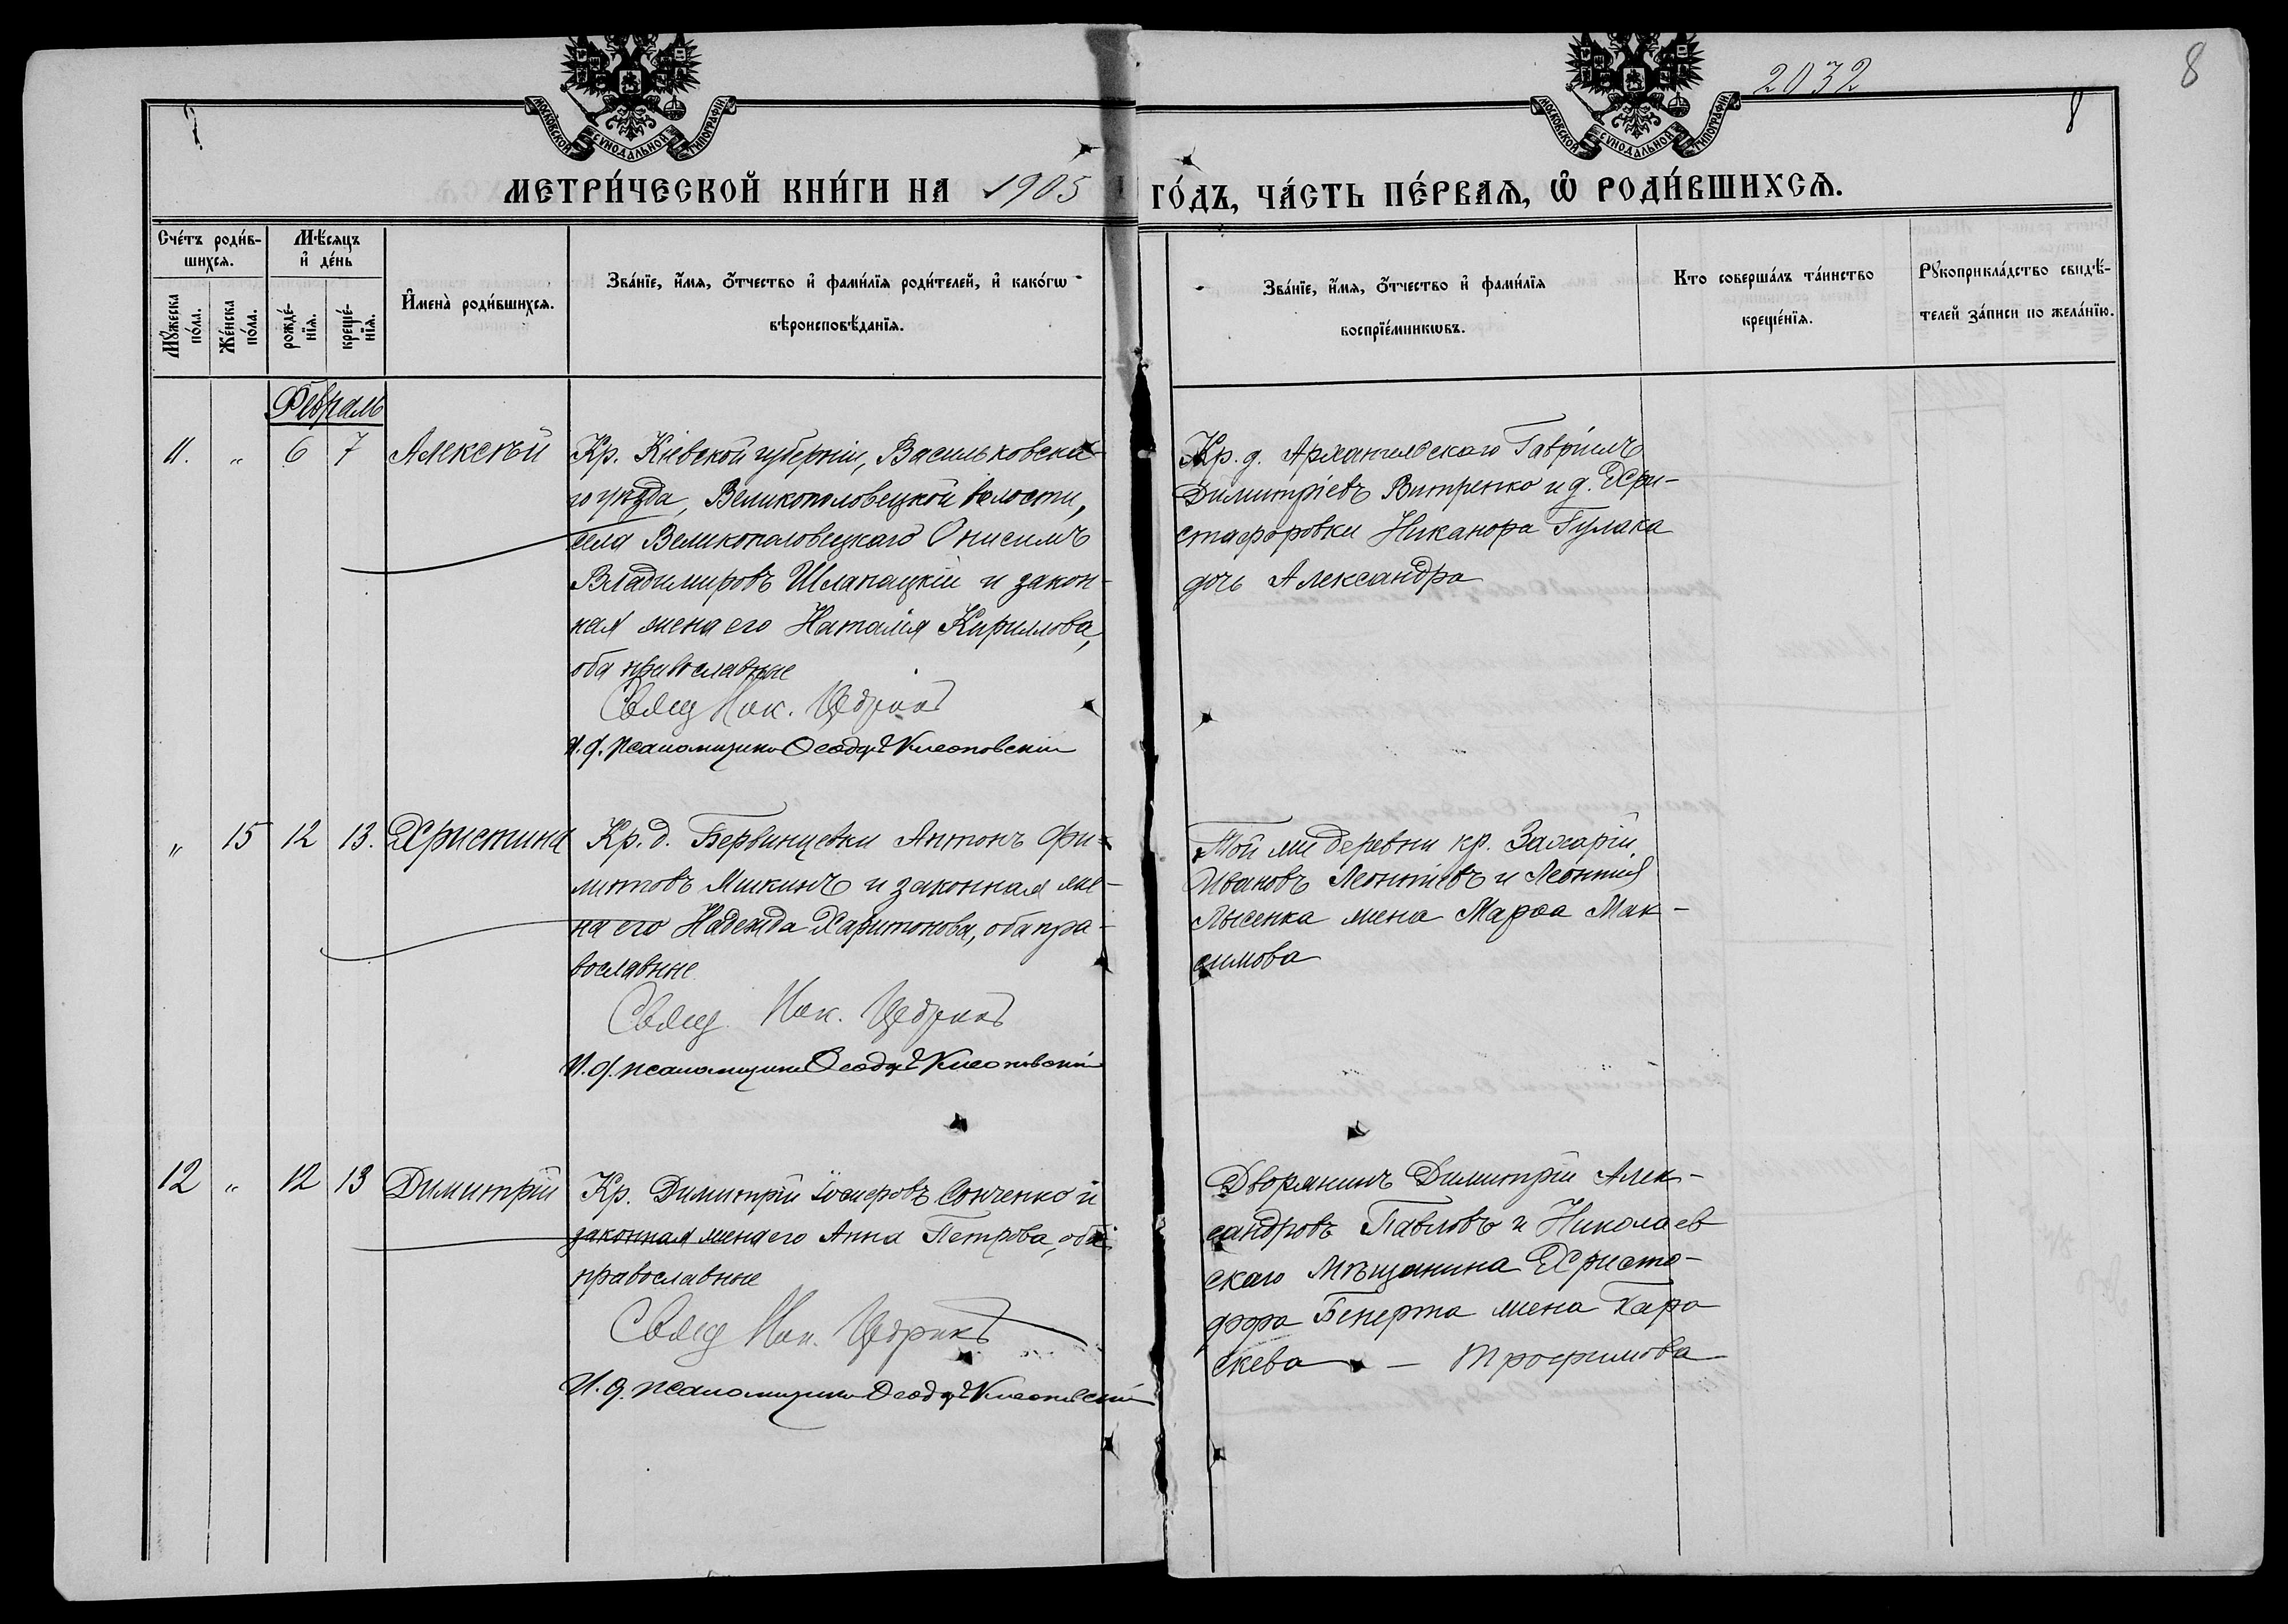 2032
8
7
8
МОСКОВСКОЙ СУНОДАЛЬНОЙ ТИПОГРАФІИ
МОСКОВСКОЙ СУНОДАЛЬНОЙ ТИПОГРАФІИ
МЕТРИ́ЧЕСКОЙ КНИ́ГИ НА 1905 ГО́ДЪ, ЧА́СТЬ ПЕ́РВАѦ, Ѿ РОДИ́ВШИХСѦ.
Сче́тъ роди́в-
шихсѧ.
Мꙋ́жеска по́ла.
Же́нска по́ла.
Мѣ́сѧцъ
и҆ де́нь
рожде́-
нїѧ.
креще́-
нїѧ.
И҆мена̀ роди́вшихсѧ.
Зва́нїе, и҆́мѧ, ѻ҆́тчество и҆ фами́лїѧ роди́телей, и҆ како́гѡ
вѣроисповѣ́данїѧ.
Зва́нїе, и҆́мѧ, ѻ҆́тчество и҆ фами́лїѧ
воспрїе́мникѡвъ.
Кто соверша́лъ та́инство
креще́нїѧ.
Рꙋкоприкла́дство свидѣ́-
телей за́писи по жела́нїю.
Февраль
11. „ 6 7 Алексѣй
Кр. Кіевской губерніи, Васильковска-
го уѣзда, Великополовецкой волости,
села Великополовецкаго Онисимъ
Владимировъ Шлапацкій и закон-
ная жена его Наталія Кириллова,
оба православные
Свящ Ник. Цедрикъ
И. д. псаломщика Ѳеодоръ Клеоповскій
Кр. д. Архангельскаго Гавріилъ
Димитріевъ Витренко и д. Хри-
стофоровки Никанора Гулака
дочь Александра
„ 15 12 13. Христина
Кр. д. Бервинцевки Антонъ Фи-
липповъ Мишкинъ и законная же-
на его Надежда Харитонова, оба пра-
вославные
Свящ. Ник. Цедрикъ
И. д. псаломщика Ѳеодоръ Клеоповскій
Той же деревни кр. Захарій
Ивановъ Леонтіевъ и Леонтія
Лысенка жена Марѳа Мак-
симова
12 „ 12 13 Димитрій
Кр. Димитрій Іосифовъ Сонченко и
законная жена его Анна Петрова, оба
православные
Свящ Ник. Цедрикъ
И. д. псаломщика Ѳеодоръ Клеоповскій
Дворянинъ Димитрій Алек-
сандровъ Павловъ и Николаев
скаго мѣщанина Христо-
фора Бенерта жена Пара
скева — Трофимова